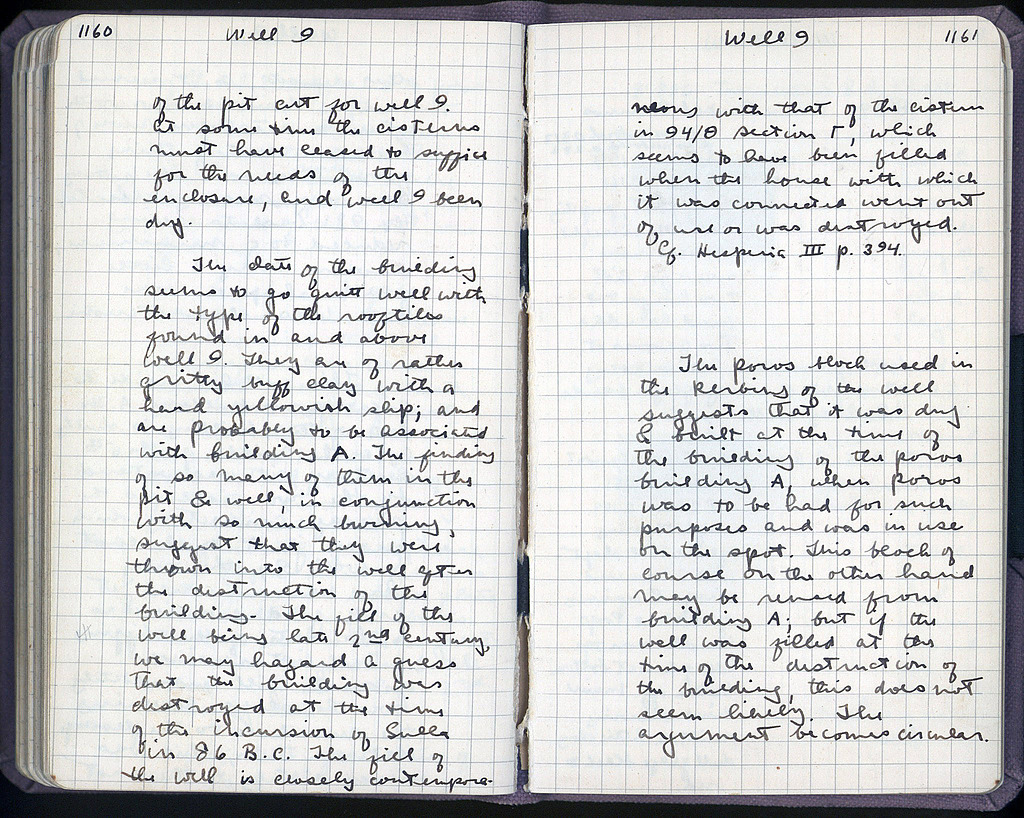 1160
Well 9
of the pit cut for well 9.
At some time the cisterns
must have ceased to suffice
for the needs of the
enclosure, and well 9 been
dug.
The date of the building
seems to go quite well with
the type of the rooftiles
found in and above
well 9. They are of rather
gritty buff clay with a
hard yellowish slip; and
are probably to be associated
with building A. The finding
of so many of them in the
pit & well, in conjunction
with so much burning,
suggest that they were
thrown into the well after
the destruction of the
building. The fill of the
well being late 2nd century,
we may hazard a guess
that the building was
destroyed at the time
of the incursion of Sulla
in 86 B.C. The fill of
the well is closely contempora-
Well 9
1161
neous with that of the cistern
in 94/Θ section Γ, which
seems to have been filled
when the house with which
it was connected went out
of use or was destroyed.
Cf. Hesperia III p. 394.
The poros block used in
the kerbing of the well
suggests that it was dug
& built at the time of
the building of the poros
building A, when poros
was to be had for such
purposes and was in use
on the spot. This block of
course on the other hand
may be reused from
building A; but if the
well was filled at the
time of the destruction of
the building, this does not
seem likely. The
argument becomes circular.